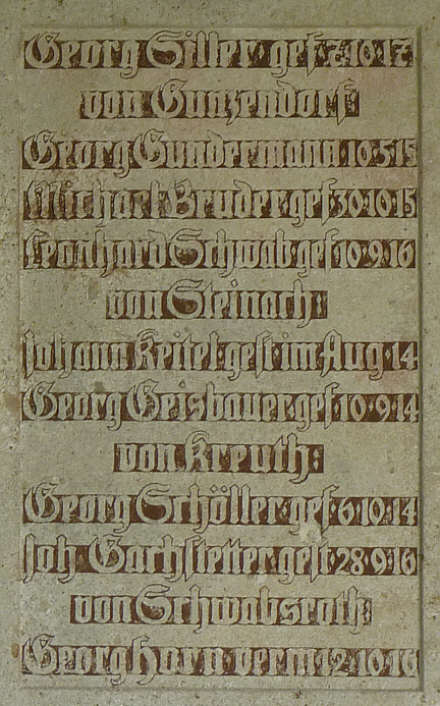 Georg Siller · gef · 7 · 10 · 17
von Gunzendorf :
Georg Gundermann · 10 · 5 · 15
Michael Bruder · gef · 30 · 10 · 15
Leonhard Schwab · gef · 10 · 9 · 16
von Steinach :
Johann Keitel · gest · im Aug · 14
Georg Geisbauer · gef · 10 · 9 · 14
von Kreuth :
Georg Schöller · gef · 6 · 10 · 14
Joh · Gachstetter · gest · 28 · 9 · 16
von Schwabsroth :
Georg Horn verm · 12 · 10 · 16